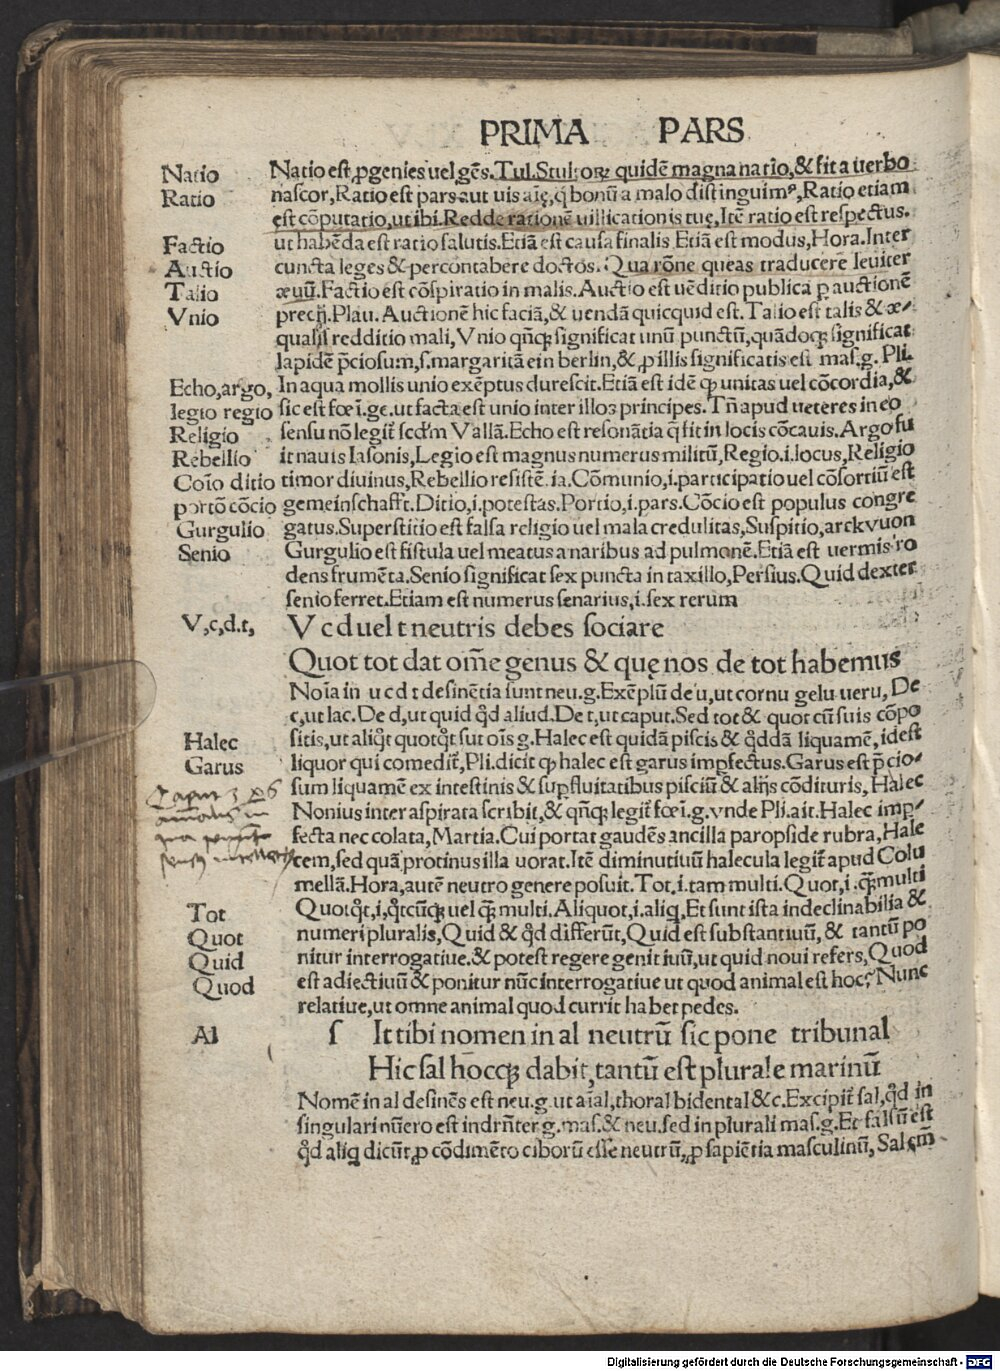 PRIMA PARS
Natio Natio est ꝓgenies uel gēs. Tul. Stultoꝝ quidē magna natio, & fit a uerbo
Ratio nascor, Ratio est pars aut uis aīę, q̄ bonū a malo distinguimꝰ, Ratio etiam
est cōputatio, ut ibi. Redde rationē uillicationis tuę, Itē ratio est respectus.
Factio ut habēda est ratio salutis. Etiā est causa finalis Etiā est modus, Hora. Inter
Auctio cuncta leges & percontabere doctos. Qua rōne queas traducere leuiter
Talio æuū. Factio est cōspiratio in malis. Auctio est uēditio publica p auctionē
Vnio precij. Plau. Auctionē hic faciā, & uendā quicquid est. Talio est talis & æ-
qualis redditio mali, Vnio qñqꝫ significat unū punctū, quādoqꝫ significat
lapidē p̄ciosum, s. margaritā ein berlin, & ꝓ illis significatis est mas. g. Pli.
Echo, argo, In aqua mollis unio exēptus durescit. Etiā est idē ꝙ unitas uel cōcordia, &
legio regio sic est fœī. ge. ut facta est unio inter illos principes. Tñ apud ueteres in eo
Religio sensu nō legit̄ scd'm Vallā. Echo est resonātia q̄ fit in locis cōcauis. Argo fu
Rebellio it nauis Iasonis, Legio est magnus numerus militū, Regio. i. locus, Religio
Coīo ditio timor diuinus, Rebellio resistētia. Cōmunio, i. participatio uel cōsortiū est
portō cōcio gemeinschafft. Ditio, i. potestas. Portio, i. pars. Cōcio est populus congre
Gurgulio gatus. Superstitio est falsa religio uel mala credulitas, Suspitio, arckvuon
Senio Gurgulio est fistula uel meatus a naribus ad pulmonē. Etiā est uermis ro
dens frumēta. Senio significat sex puncta in taxillo, Persius. Quid dexter
senio ferret. Etiam est numerus senarius, i. sex rerum
V, c, d. t, V c d uel t neutris debes sociare
Quot tot dat om̄e genus & quę nos de tot habemus
Noīa in u c d t desinētia sunt neu. g. Exēplū de u, ut cornu gelu ueru, De
c, ut lac. De d, ut quid qd̄ aliud. De t, ut caput. Sed tot & quot cū suis cōpo
Halec sitis, ut aliqt̄ quotqt̄ sut oīs g. Halec est quidā piscis & qd̄dā liquamē, id est
Garus liquor qui comedit̄, Pli. dicit ꝙ halec est garus imꝑfectus. Garus est p̄cio-
sum liquamē ex intestinis & suꝑfluitatibus pisciū & alijs cōdituris, Halec
Nonius inter aspirata scribit, & qñqꝫ legit̄ fœī. g. vnde Pli. ait. Halec imꝑ-
fecta nec colata, Martia. Cui portat gaudēs ancilla paropside rubra, Hale
cem, sed quā protinus illa uorat. Itē diminutiuū halecula legit̄ apud Colu
mellā. Hora, autē neutro genere posuit. Tot. i. tam multi. Quot, i. q̄ꝫ multi
Tot Quotqt̄, i, qt̄cūqꝫ uel q̄ꝫ multi. Aliquot, i. aliq. Et sunt ista indeclinabilia &
Quot numeri pluralis, Quid & qd̄ differūt, Quid est substantiuū, & tantū po
Quid nitur interrogatiue. & potest regere genitiuū, ut quid noui refers, Quod
Quod est adiectiuū & ponitur nūc interrogatiue ut quod animal est hoc? Nunc
relatiue, ut omne animal quod currit habet pedes.
Al ſ It tibi nomen in al neutrū sic pone tribunal
Hic sal hoccqꝫ dabit, tantū est plurale marinū
Nomē in al desinēs est neu. g. ut aīal, thoral bidental &c. Excipit̄ sal, qd̄ in
singulari nūero est indrn̄ter g. mas. & neu. sed in plurali mas. g. Et falsū est
qd̄ aliq dicūt, ꝓ cōdimēto ciborū esse neutrū, ꝓ sapiētia masculinū, Sal em̄
Digitalisierung gefördert durch die Deutsche Forschungsgemeinschaft - DFG